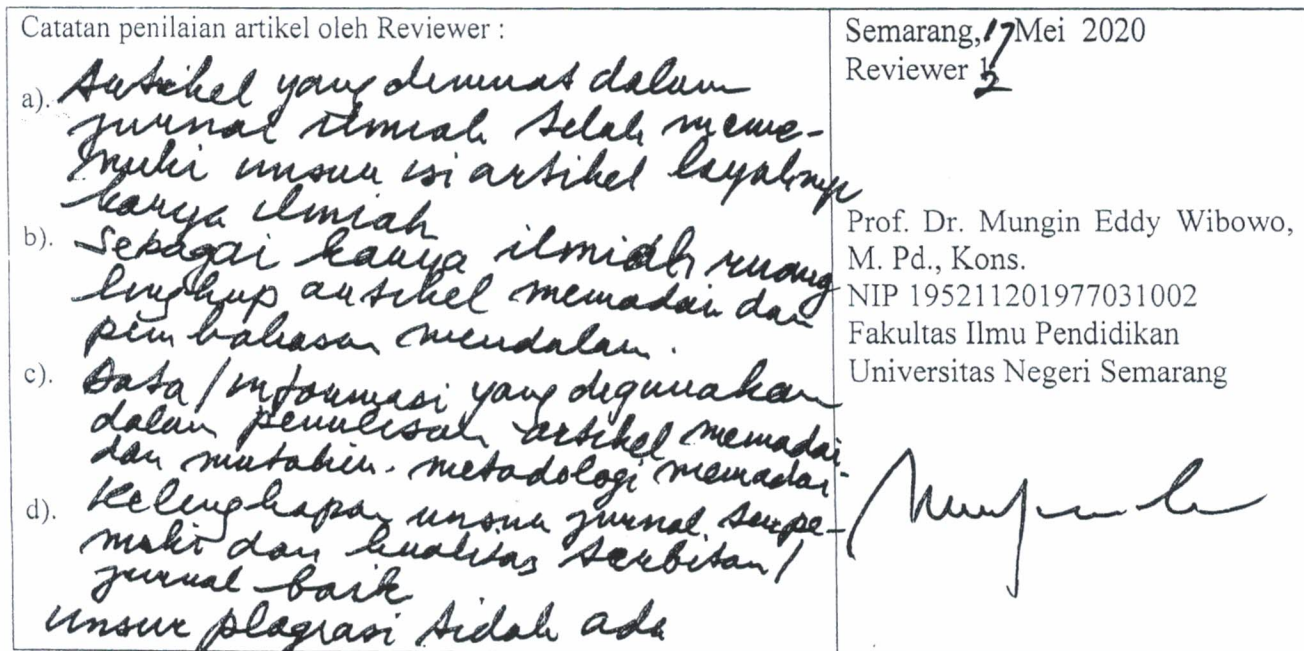 Catatan penilaian artikel oleh Reviewer :
a). Artikel yang dimuat dalam
jurnal ilmiah telah meme-
nuhi unsur isi artikel layaknya
karya ilmiah
b). Sebagai karya ilmiah ruang
lingkup artikel memadai dan
pembahasan mendalam.
c). Data / informasi yang digunakan
dalam penulisan artikel memadai
dan mutahir. metodologi memadai.
d). Kelengkapan unsur jurnal terpe-
nuhi dan kualitas terbitan /
jurnal baik
unsur plagiasi tidak ada
Semarang, 17 Mei 2020
Reviewer 2
Prof. Dr. Mungin Eddy Wibowo,
M. Pd., Kons.
NIP 195211201977031002
Fakultas Ilmu Pendidikan
Universitas Negeri Semarang